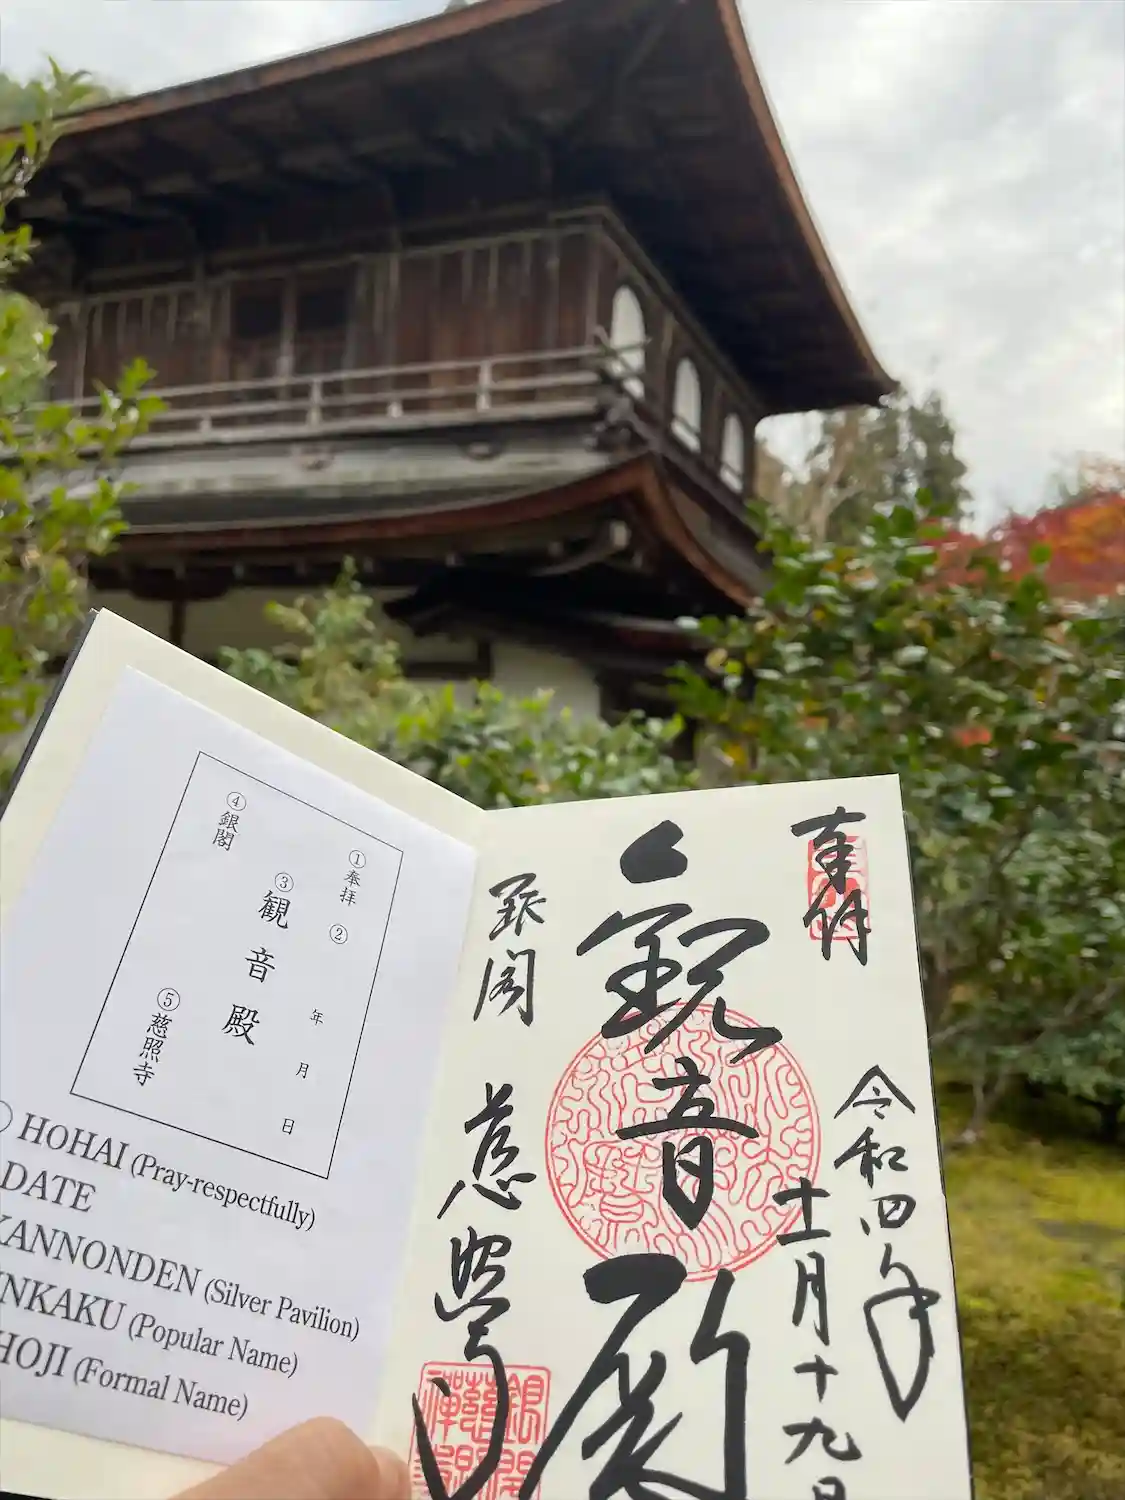 ④銀閣
①奉拝 ②
③観音殿
年 月 日
⑤慈照寺
HOHAI (Pray-respectfully)
DATE
KANNONDEN (Silver Pavilion)
NKAKU (Popular Name)
HOJI (Formal Name)
奉拝
令和四年
十一月十九日
観音殿
銀閣
慈照寺